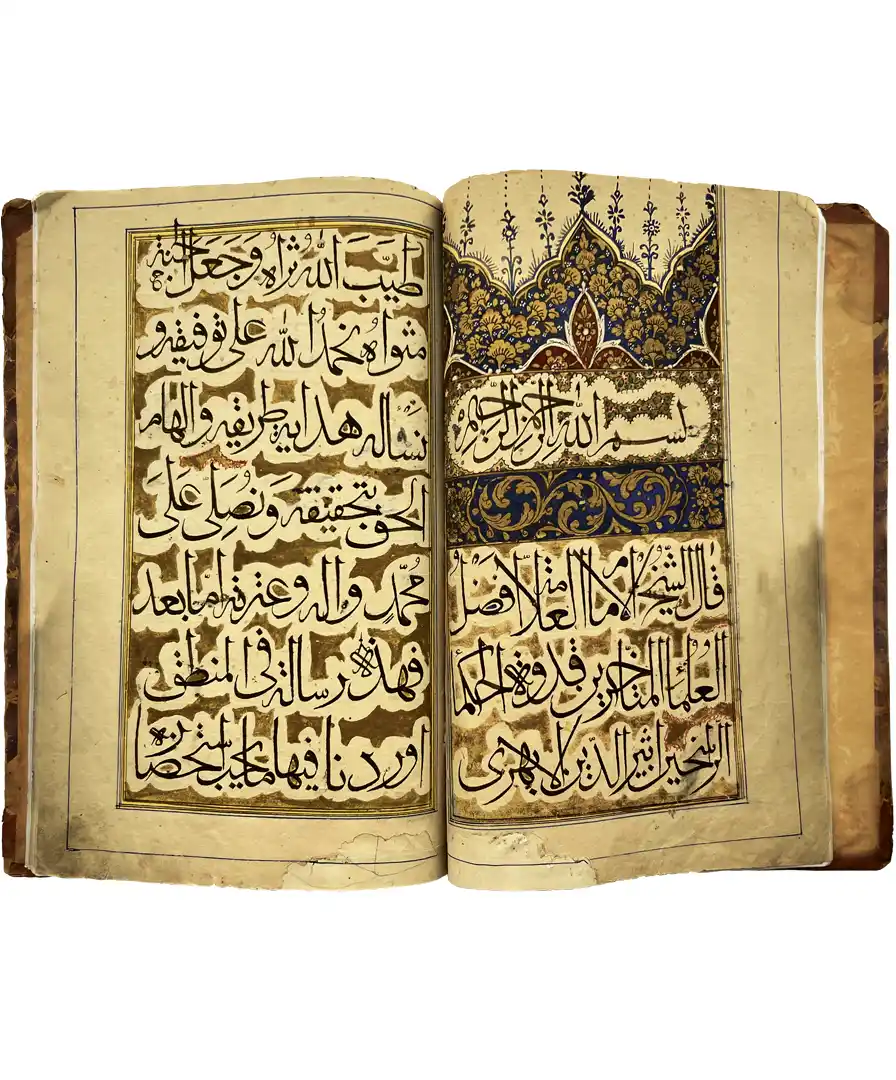 بسم الله الرحمن الرحيم
قال الشيخ الامام العلامة افضل
العلماء المتاخرين قدوة الحكما
الراسخين اثير الدين الابهرى
طَيَّبَ الله ثراه وَجَعَلَ الجنة
مثواه نحمد الله على توفيقه و
نساله هداية طريقه والهام
الحق بتحقيقه وَنُصَلِّى عَلَى
مُحمّدٍ واله وعترته امّا بعد
فهذه رسالة فى المنطق
اوردنا فيها ما يجب استحضاره